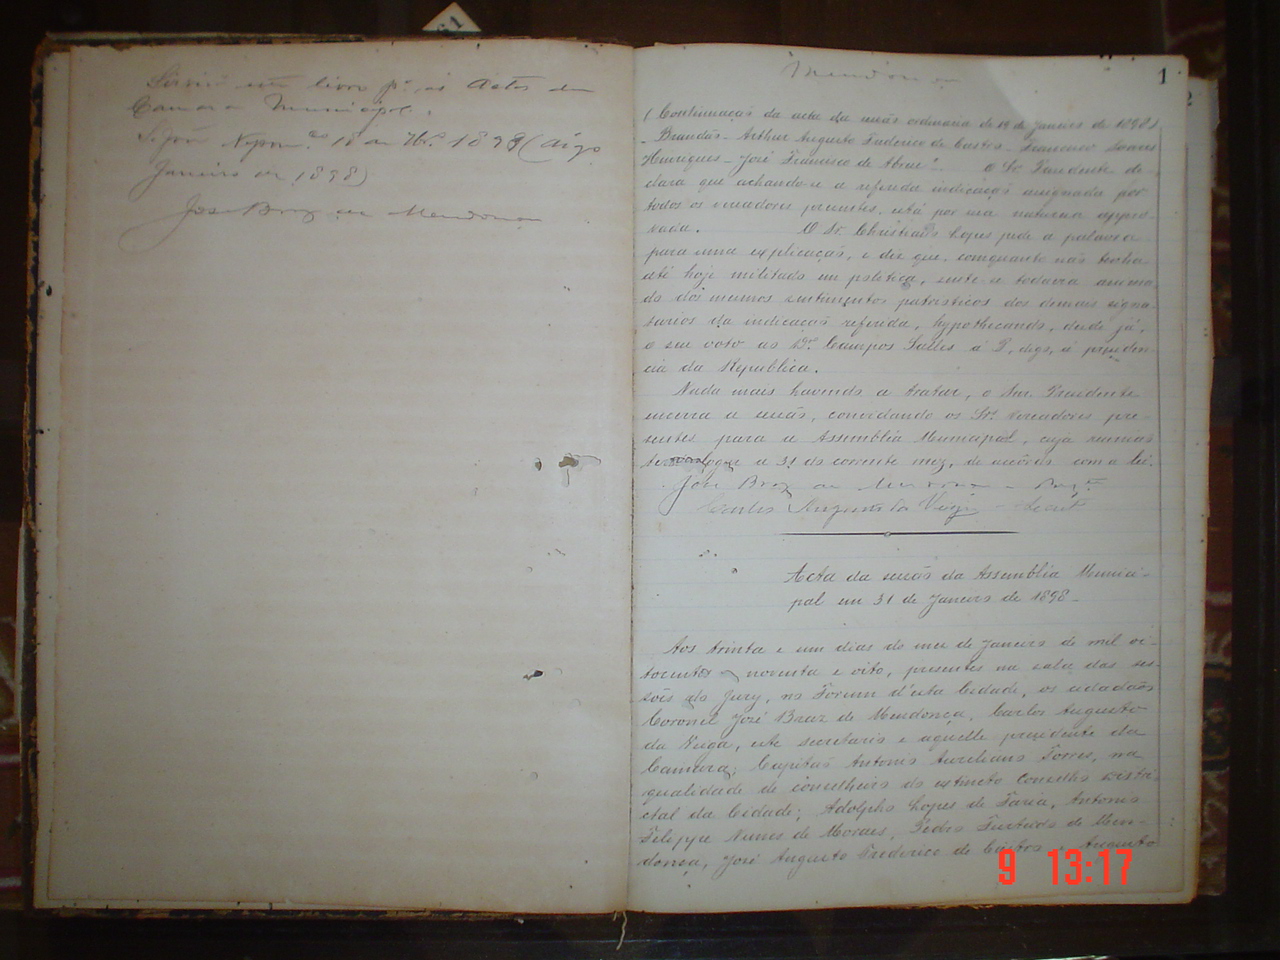 Servirá este livro pª as Actas da
Camara Municipal.
S. João Nepom.º 18 de 1898 (digo
Janeiro de 1898)
José Braz de Mendonça
61
Mendonça
1
2
(Continuação da acta da sessão ordinaria de 19 de Janeiro de 1898)
Brandão - Arthur Augusto Frederico de Castro - Francisco Soares
Henriques - José Francisco de Abreu. O Sr. Presidente de-
clara que achando-se a referida indicação assignada por
todos os vereadores presentes, está por sua natureza appro-
vada. O Sr. Christiano Lopes pede a palavra
para uma explicação, e diz que, comquanto não tenha
até hoje militado em politica, sente-se todavia anima-
do dos mesmos sentimentos patrioticos dos demais signa-
tarios da indicação referida, hypothecando, desde já,
o seu voto ao Dr. Campos Salles á P, digo, á presiden-
cia da Republica.
Nada mais havendo a tratar, o Snr. Presidente
encerra a sessão, convidando os Srs. vereadores pre-
sentes para a Assembléa Municipal, cuja reunião
terá logar a 31 do corrente mez, de acôrdo com a lei.
José Braz de Mendonça - Presid.te
Carlos Augusto da Veiga - Secret.
Acta da sessão da Assembléa Munici-
pal em 31 de Janeiro de 1898.
Aos trinta e um dias do mez de Janeiro de mil oi-
tocentos e noventa e oito, presentes na sala das ses-
sões do Jury, no Forum d'esta Cidade, os cidadãos
Coronel José Braz de Mendonça, Carlos Augusto
da Veiga, este secretario e aquelle presidente da
Camara; Capitão Antonio Aureliano Torres, na
qualidade de conselheiro do extincto Conselho Distri-
ctal da Cidade; Adolpho Lopes de Faria, Antonio
Felippe Nunes de Moraes, Pedro Furtado de Men-
donça, José Augusto Frederico de Castro e Augusto
9 13:17